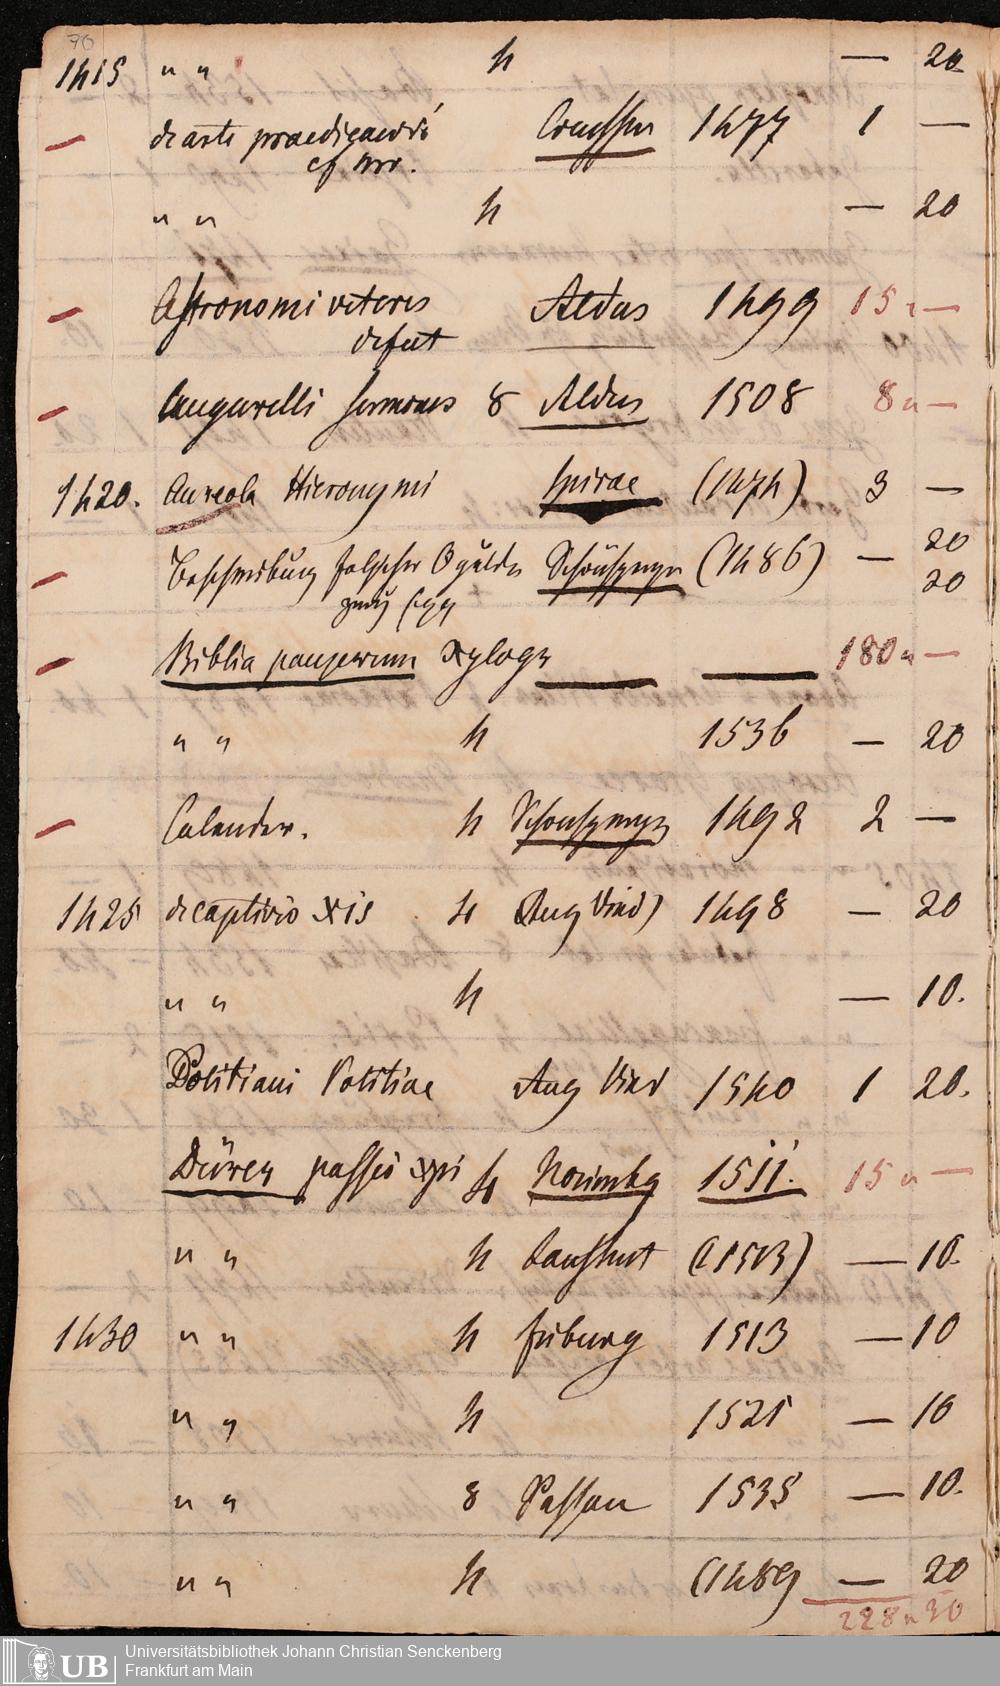 70
1415 " " 4 — 20
— de arte praedicandi Creussner 1477 1 —
" " 4 — 20
— Astronomi veteres Aldus 1499 15 " —
defect
— Augurelli sermones 8 Aldus 1508 8 " —
1420. Aureola Hieronymi Spirae (1474) 3 —
— Beschreibung falscher Gulden Schönsperger (1486) — 20
20
— Biblia pauperum Xylogr — — 180 " —
" " 4 1536 — 20
— Calender. 4 Schonsperger 1492 2 —
1425 de captivio xis 4 Aug Vind) 1498 — 20
" " 4 — 10.
Politiani Politiae Aug Vind 1540 1 20.
Dürer passio xpi 4 Norimbg 1511. 15 " —
" " 4 Landshut (1513) — 10.
1430 " " 4 friburg 1513 — 10
" " 4 1521 — 10
" " 8 Passau 1535 — 10.
" " 4 (1489 — 20
228 " 30
UB Universitätsbibliothek Johann Christian Senckenberg
Frankfurt am Main